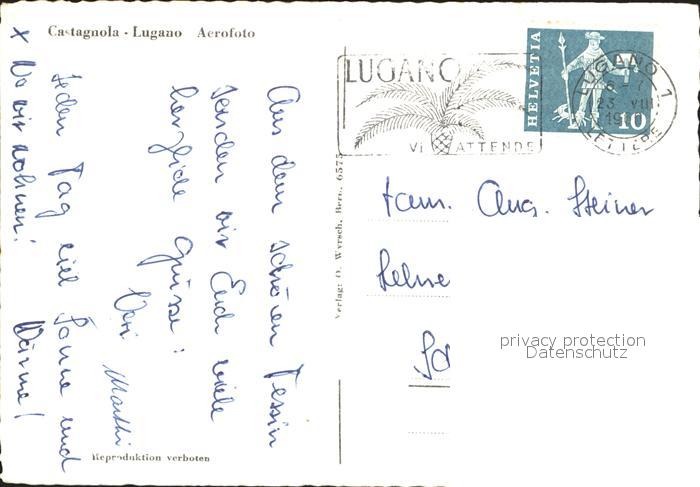 Castagnola - Lugano Aerofoto
LUGANO
VI ATTENDE
HELVETIA
10
LUGANO 1
6-7
23 VIII
19
LETTERE
Aus dem schönen Tessin
senden wir Euch viele
herzliche Grüsse!
Vreni Marthi
Jeden Tag viel Sonne und
Wärme!
x Wo wir wohnen!
Verlag: O. Wyrsch, Bern, 657
Fam. Aug. Steiner
privacy protection
Datenschutz
Reproduktion verboten